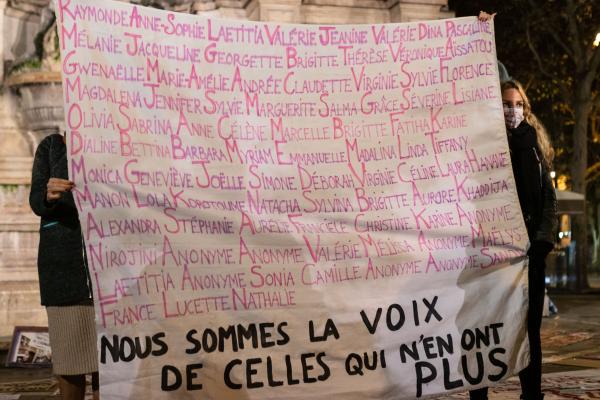 Raymonde Anne-Sophie Laetitia Valérie Jeanine Valérie Dina Pascaline
Mélanie Jacqueline Georgette Brigitte Thérèse Véronique Aïssatou
Gwenaëlle Marie-Amélie Andrée Claudette Virginie Sylvie Florence
Magdalena Jennifer Sylvie Marguerite Salma Grâce Séverine Lisiane
Olivia Sabrina Anne Célène Marcelle Brigitte Fatiha Karine
Djaline Bettina Barbara Myriam Emmanuelle Madalina Linda Tiffany
Monica Geneviève Joëlle Simone Déborah Virginie Céline Laura Hanane
Manon Lola Korotoume Natacha Sylvina Brigitte Aurore Khaddija
Alexandra Stéphanie Aurélie Christine Karine Anonyme
Nirojini Anonyme Anonyme Valérie Mélissa Anonyme Maëlys
Laetitia Anonyme Sonia Camille Anonyme Anonyme
France Lucette Nathalie
NOUS SOMMES LA VOIX
DE CELLES QUI N'EN ONT
PLUS